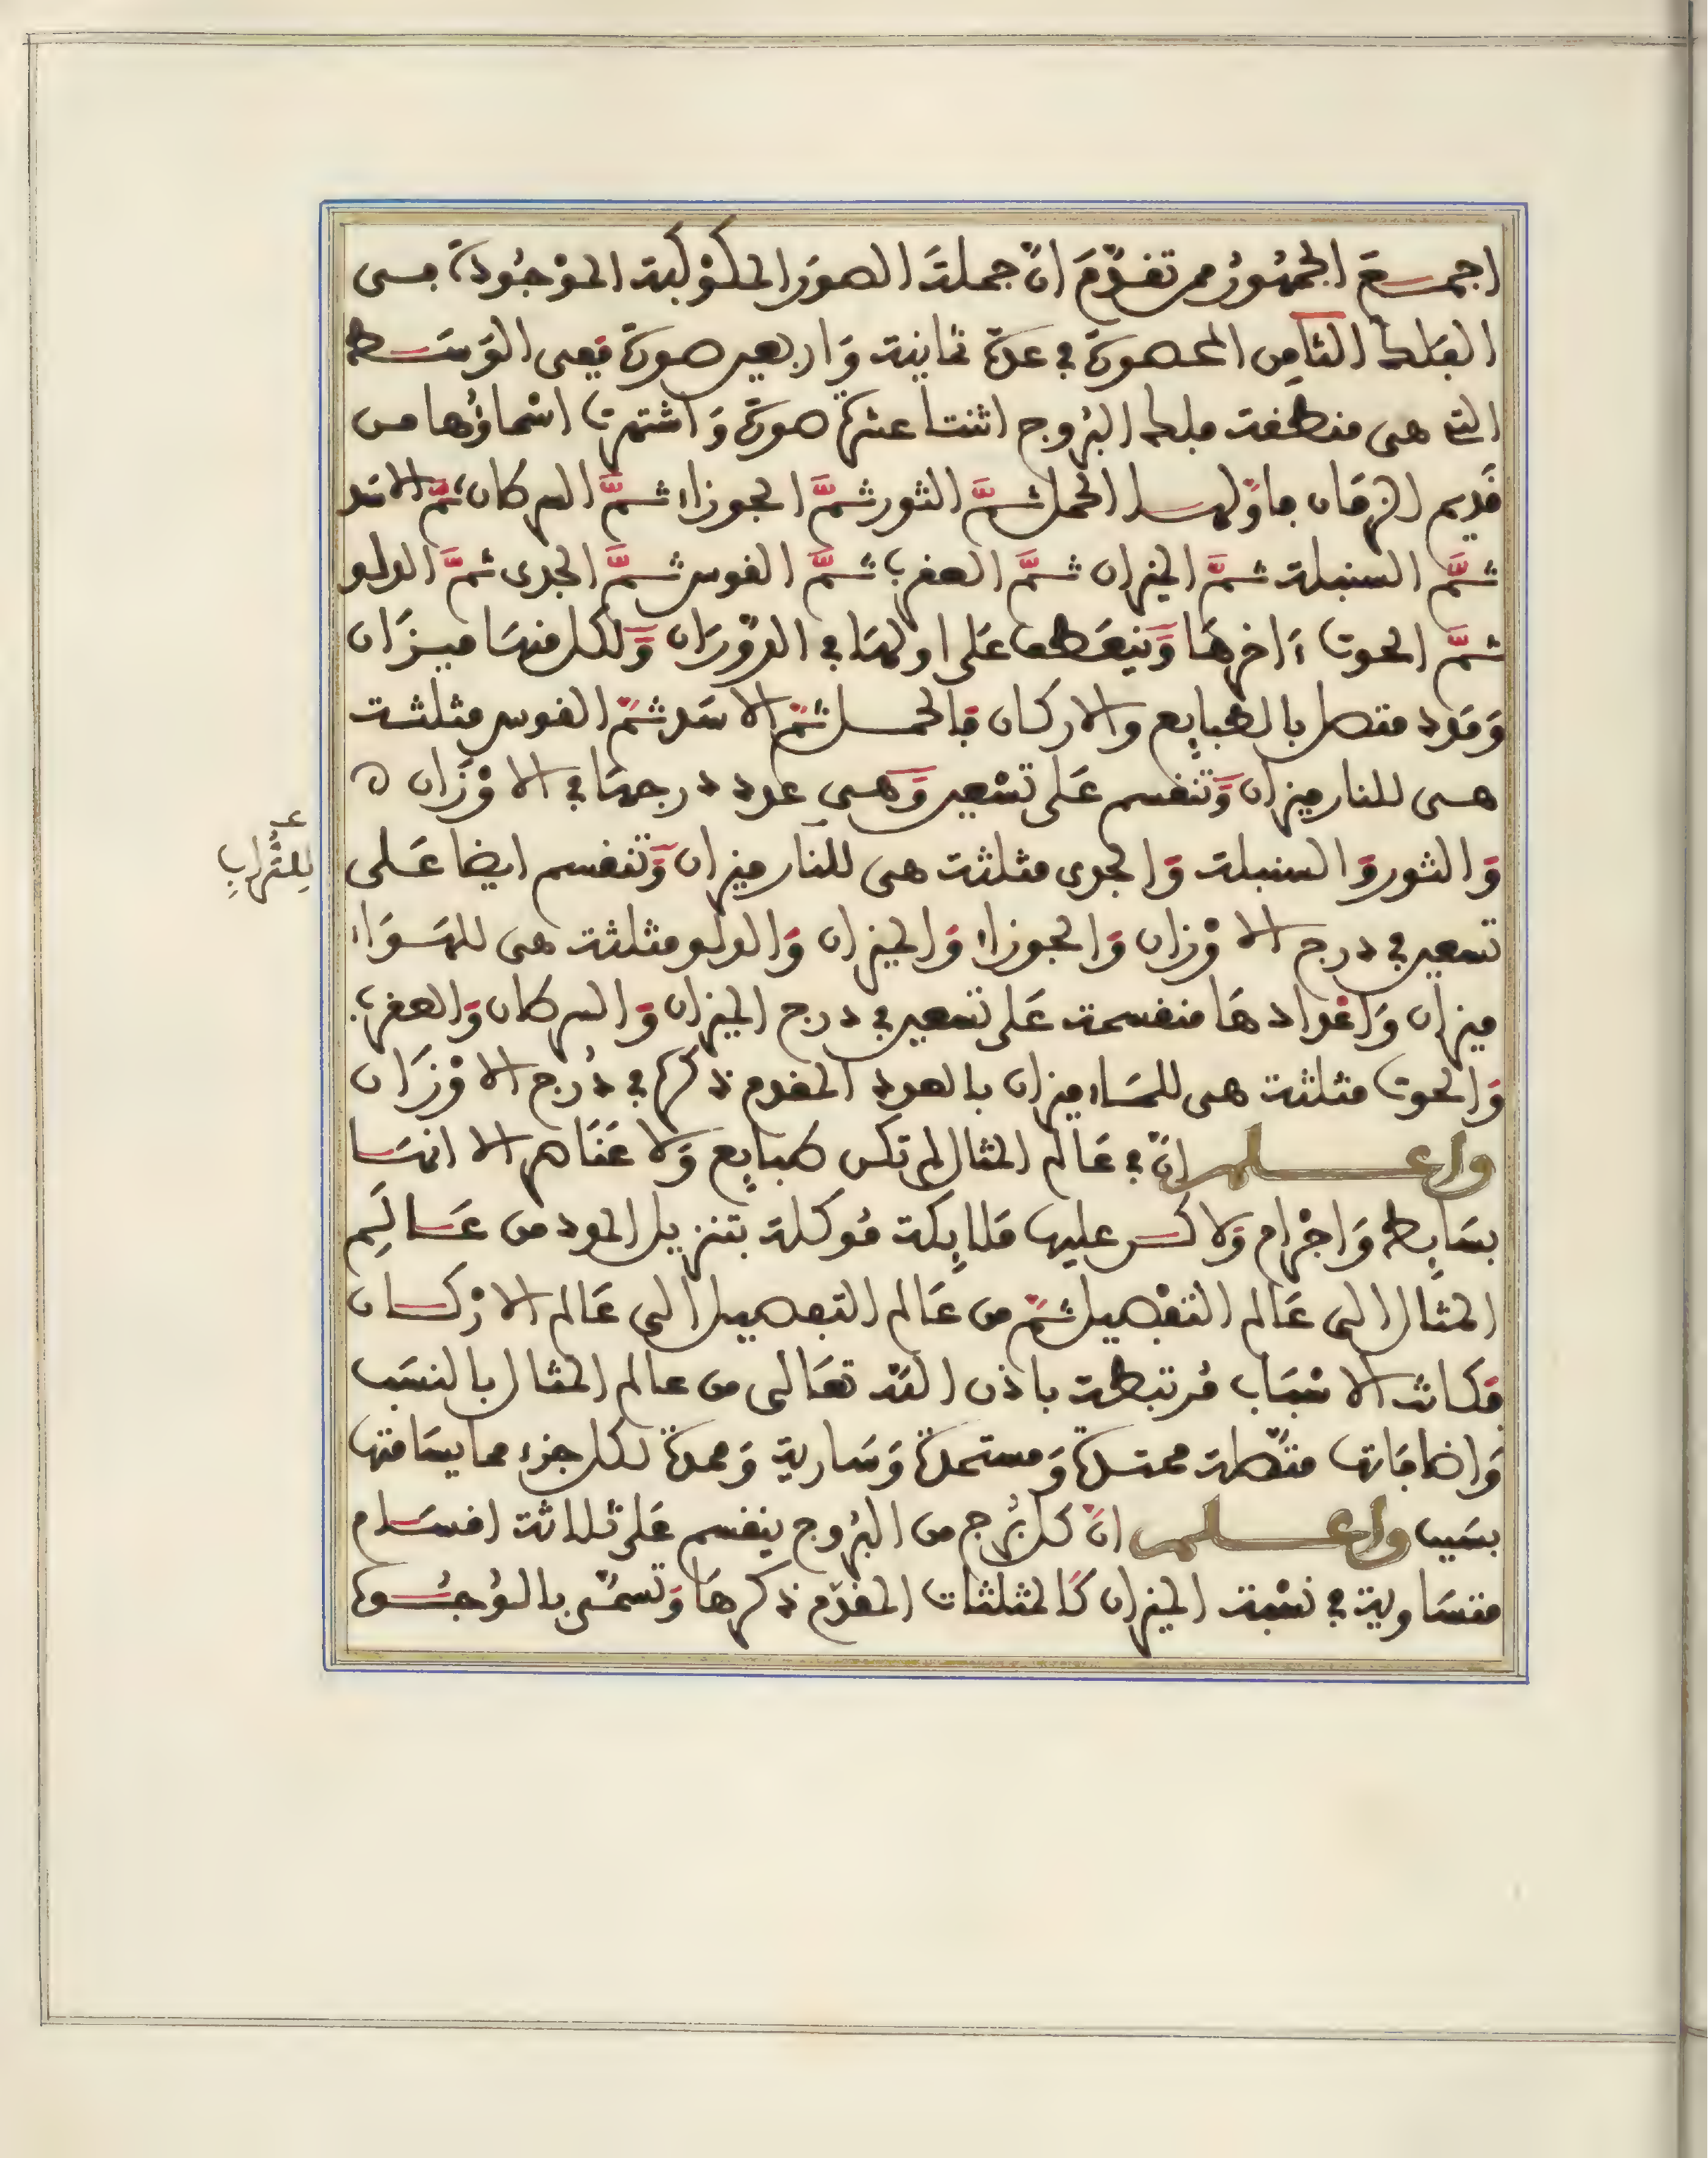 اجمع الجمهور ممن تقدّم انّ جملة الصور الكوكبية الموجودة في
الفلك الثامن المحصورة في عدة ثمانية واربعين صورة ففي الوسط
التي هي منطقة فلك البروج اثنتا عشرة صورة واشتهرت اسماؤها من
قديم الزمان فاوّلها الحمل ثمّ الثور ثمّ الجوزاء ثمّ السرطان ثمّ الاسد
ثمّ السنبلة ثمّ الميزان ثمّ العقرب ثمّ القوس ثمّ الجدي ثمّ الدلو
ثمّ الحوت ءاخرها وينعطف على اولها في الدوران ولكل منها ميزان
ومدد متصل بالطبايع والاركان فالحمل ثمّ الاسد ثمّ القوس مثلثة
هي للنار ميزان وتنقسم على تسعين وهي عدد درجها في الاوزان ه
والثور والسنبلة والجدي مثلثة هي للنار ميزان وتنقسم ايضا على
للتراب
تسعين في درج الاوزان والجوزاء والميزان والدلو مثلثة هي للهواء
ميزان واعدادها منقسمة على تسعين في درج الميزان والسرطان والعقرب
والحوت مثلثة هي للماء ميزان بالعدد المقدم ذكره في درج الاوزان
واعلم انّ في عالم المثال لم تكن طبايع ولا عناصر الا انها
بسايط واجرام ولاكن عليها ملايكة موكلة بتنزيل المدد من عالم
المثال الى عالم التفصيل ثمّ من عالم التفصيل الى عالم الاركان
فكانت الاسباب مرتبطة باذن الله تعالى من عالم المثال بالنسب
واضافاتها متّصلة ممتدة ومستمدة وسارية وممدة لكل جزء مما يسامتها
بسبب واعلم انّ كل برج من البروج ينقسم على ثلاثة اقسام
متساوية في نسبة الميزان كالمثلثات المقدّم ذكرها وتسمّى بالوجوه